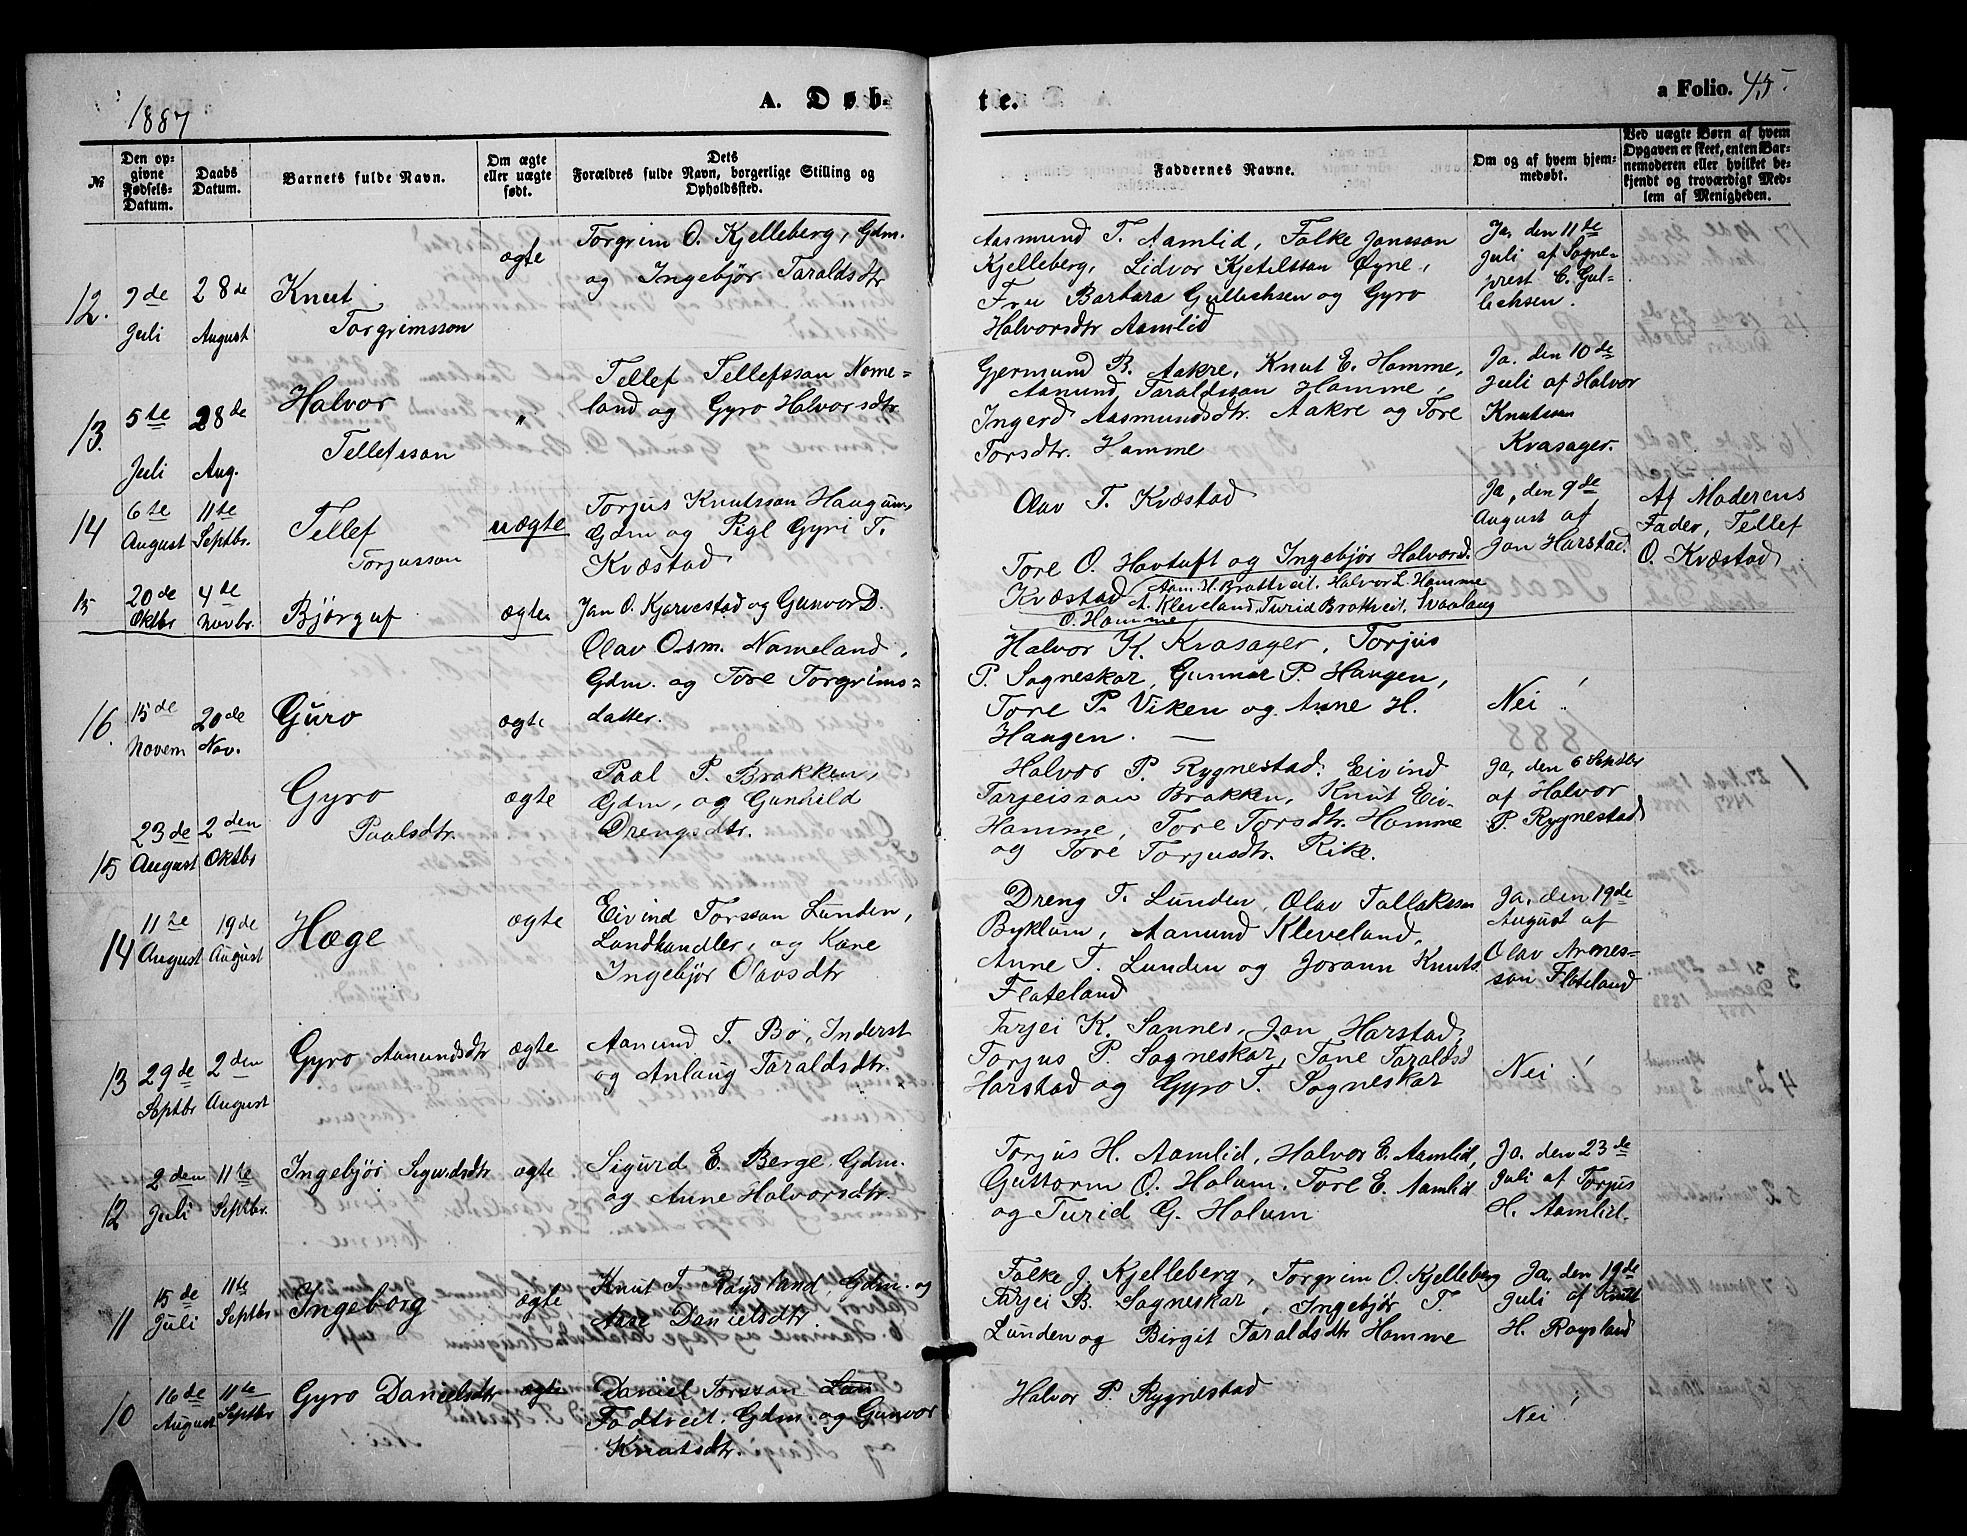 1887
A. Døb-
te.
a Folio. 45.
№
Den op-
givne
Fødsels-
Datum.
Daabs
Datum.
Barnets fulde Navn.
Om ægte
eller uægte
født.
Dets
Forældres fulde Navn, borgerlige Stilling og
Opholdssted.
Faddernes Navne.
Om og af hvem hjem-
medøbt.
Ved uægte Børn af hvem
Opgaven er skeet, enten Bar-
nemoderen eller hvilket be-
kjendt og troværdigt Med-
lem af Menigheden.
12.
9de
Juli
28de
August
Knut
Torgrimsson
ægte
Torgrim O. Kjelleberg, Gdm.
og Ingebjør Taraldsdtr
Aasmund T. Aamlid, Folke Jonsson
Kjelleberg, Lidvor Kjetilsson Øyne,
Fru Barbara Gullichsen og Gyro
Halvorsdtr Aamlid
Ja, den 11de
Juli af Sogne-
prest C. Gul-
lichsen.
13.
5te
Juli
28de
Aug.
Halvor
Tellefsson
"
Tellef Tellefsson Nome-
land og Gyro Halvorsdtr.
Gjermund B. Aakre, Knut E. Homme,
Aanund Taraldsson Homme,
Ingerd Aasmundsdtr. Aakre og Tore
Torsdtr. Homme
Ja, den 10de
Juli af Halvor
Knutsson
Kvasager.
14
6te
August
11te
Septbr.
Tellef
Torjusson
uægte
Torjus Knutsson Haugum,
Gdm og Pigl Gyri T.
Kvæstad
Olav T. Kvæstad
Tore O. Hovtuft og Ingebjør Halvord.
Kvæstad
Ja, den 9de
August af
Jon Harstad.
Af Moderens
Fader, Tellef
O. Kvæstad
15
20de
Oktbr
4de
Novbr.
Bjørguf
ægte
Jon O. Kjørvestad og Gunvor D.
Aam. H. Brottveit, Halvor L. Homme
A. Kleveland, Turid Brottveit, Svaalaug
O. Homme
16.
15de
Novem
20de
Nov.
Guro
ægte
Olav Osm. Nomeland,
Gdm. og Tore Torgrims=
datter.
Halvor K. Kvasager, Torjus
P. Sagneskar, Gunnar P. Haugen,
Tore P. Viken og Anne H.
Haugen. —
Nei!
15
23de
August
2den
Oktbr
Gyro
Paalsdtr.
ægte
Paal P. Brokken,
Gdm, og Gunhild
Drengsdtr.
Halvor P. Rygnestad, Eivind
Tarjeisson Brokken, Knut Eiv-
Homme, Tore Torsdtr. Homme
og Tore Torjusdtr. Rike.
Ja, den 6 Septbr
af Halvor
P. Rygnestad
14
11te
August
19de
August
Hæge
ægte
Eivind Torsson Lunden,
Landhandler, og Kone
Ingebjør Olavsdtr
Dreng T. Lunden, Olav Tallaksson
Byklum, Aanund Kleveland,
Anne T. Lunden og Jorann Knuts
Flateland
Ja, den 19de
August af
Olav Arnes-
son Flateland
13
29de
Septbr
2den
August
Gyro Aanundsdtr
ægte
Aanund T. Bø, Inderst
og Anlaug Taraldsdtr.
Tarjei K. Sannes, Jon Harstad,
Torjus P. Sagneskar, Tone Taraldsd
Harstad og Gyro T. Sagneskar
Nei!
12
2den
Juli
11te
Septbr.
Ingebjør Sigurdsdtr
ægte
Sigurd E. Berge, Gdm.
og Anne Halvorsdtr.
Torjus H. Aamlid, Halvor E. Aamlid,
Guttorm O. Holum, Tore E. Aamlid
og Turid G. Holum
Ja, den 23de
Juli af Torjus
H. Aamlid.
11
15de
Juli
11te
Septbr
Ingeborg
ægte
Knut T. Røysland, Gdm. og
Aase Danielsdtr.
Folke J. Kjelleberg, Torgrim O. Kjelleberg
Tarjei B. Sagneskar, Ingebjør T.
Lunden og Birgit Taraldsdtr Homme
Ja, den 19de
Juli af Knut
H. Roysland
10
16de
August
11te
Septbr
Gyro Danielsdtr
ægte
Daniel Torsson Lan
Fodtveit, Gdm. og Gunvor
Knutsdtr.
Halvor P. Rygnestad
Nei!